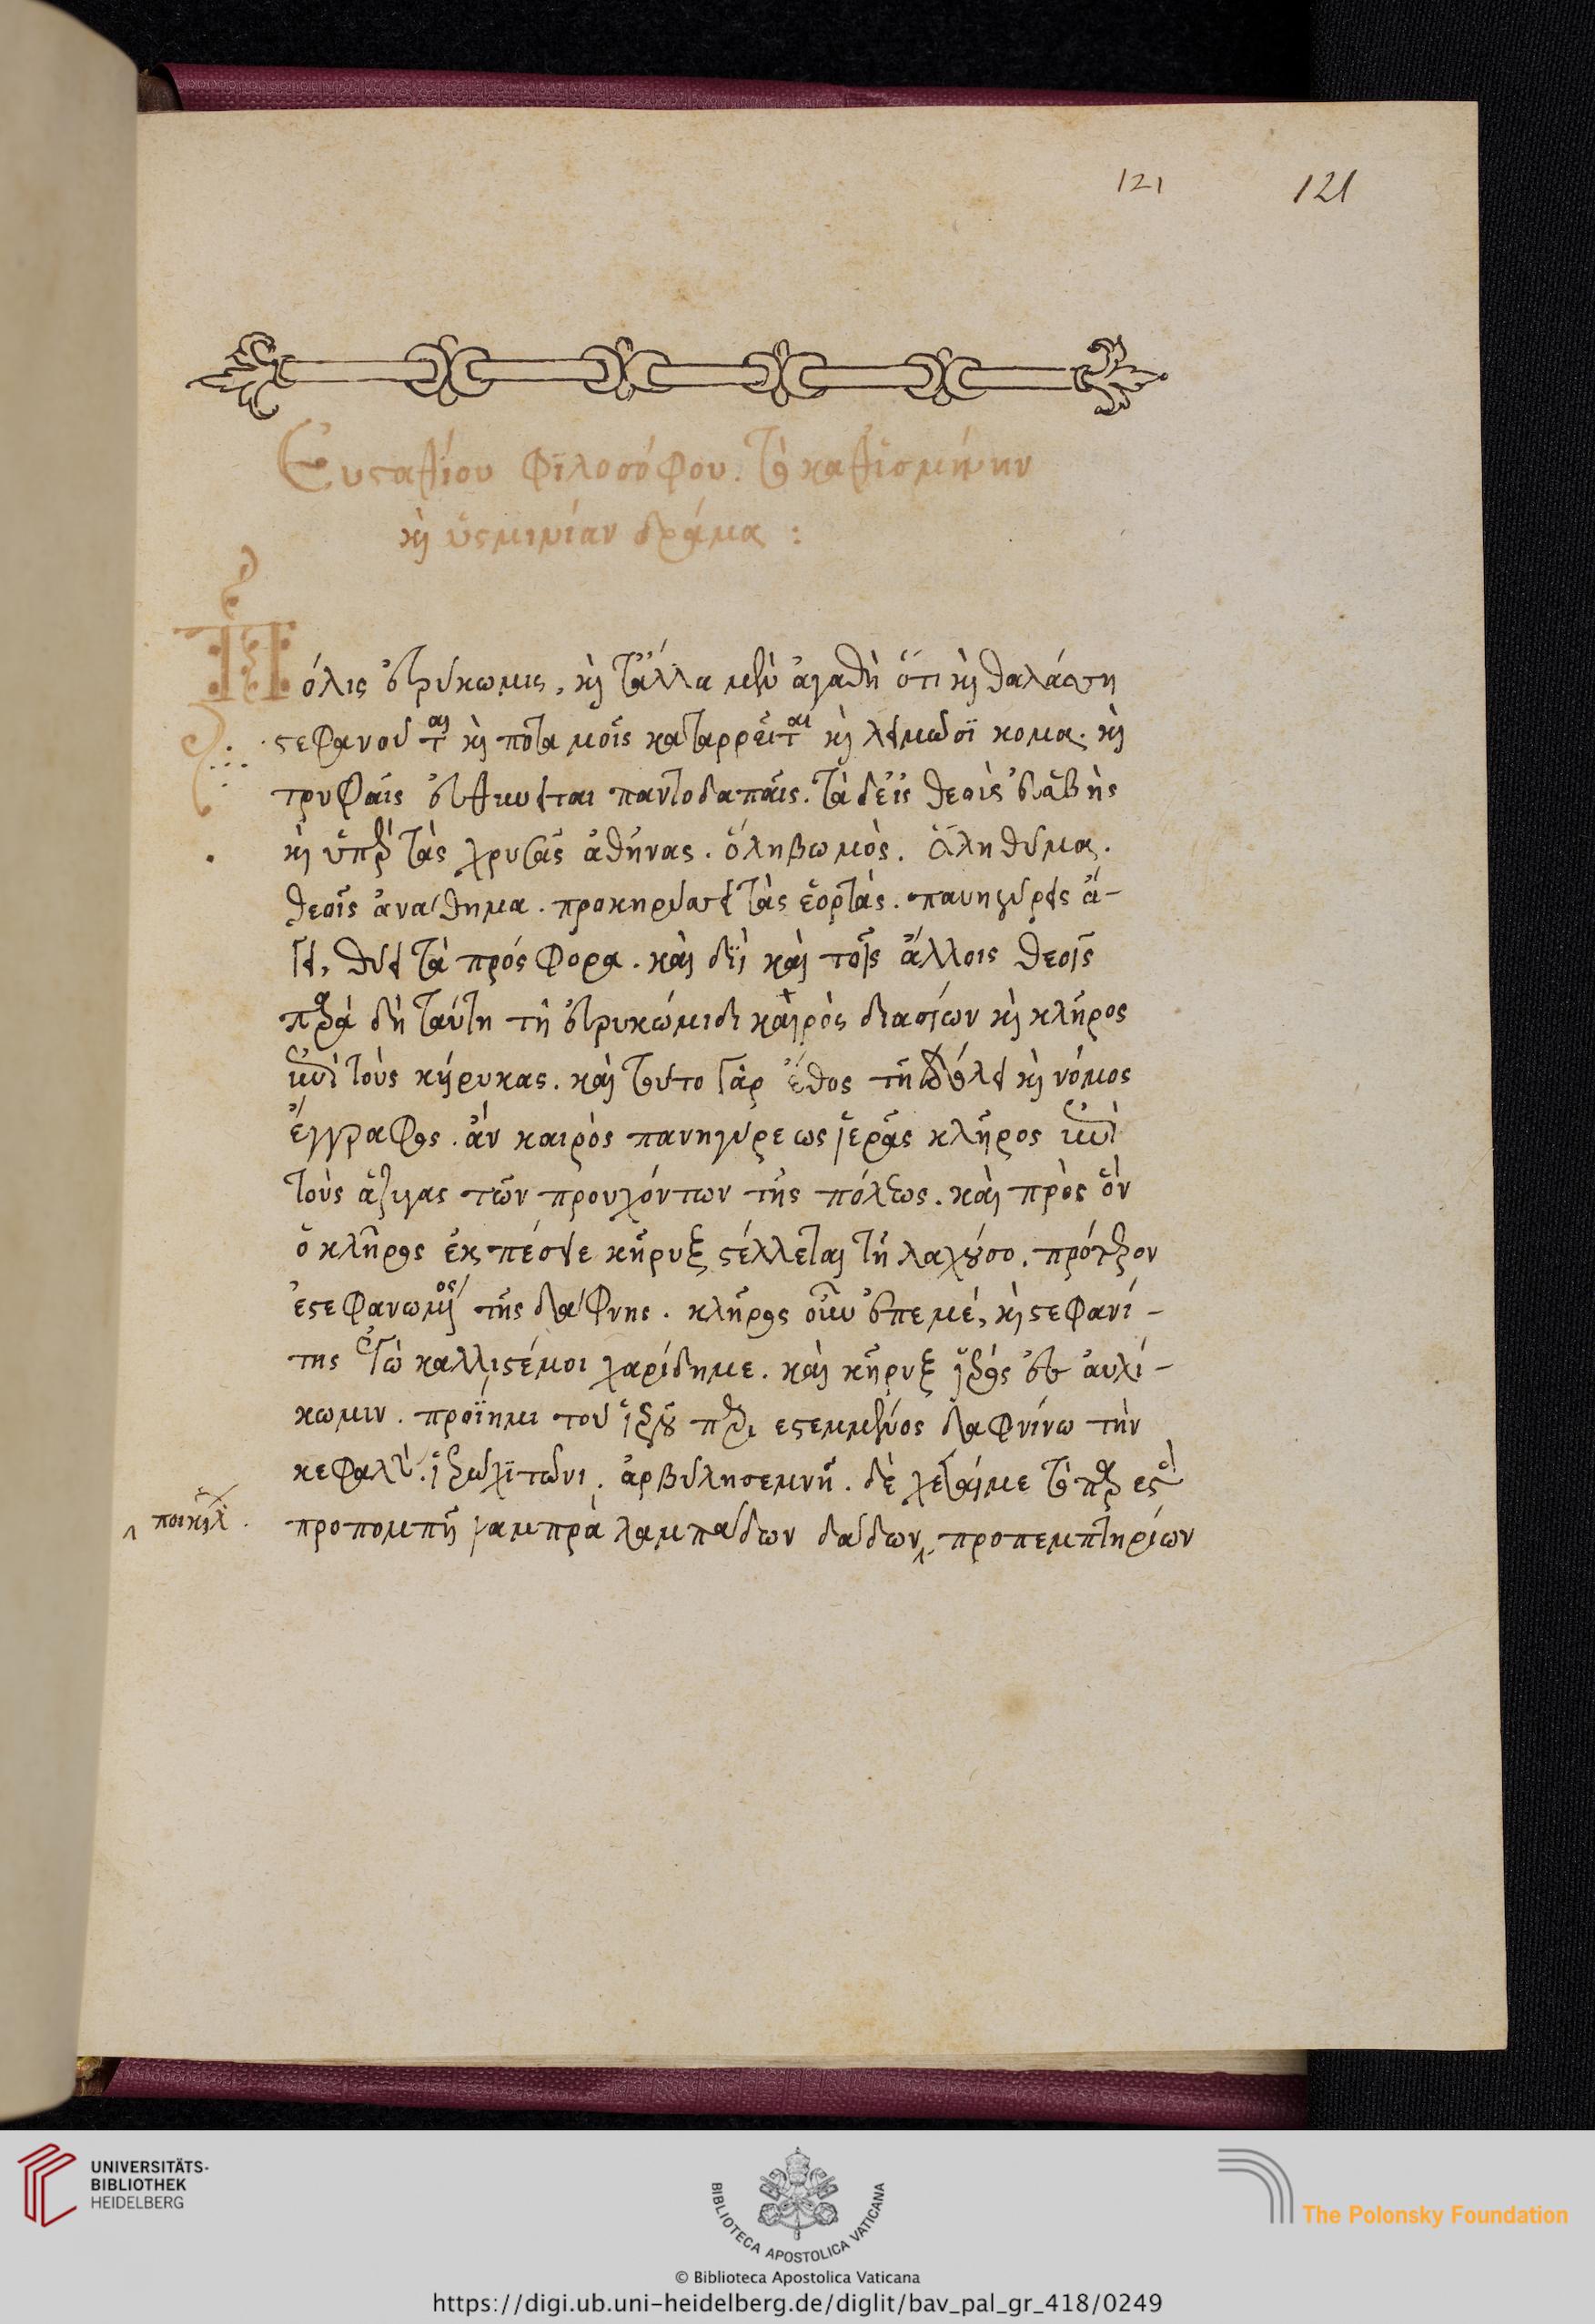 121 121
Ευσταθίου φιλοσόφου. τὸ καθ' ἰσμήνην
καὶ ὑσμινίαν δρᾶμα :
Πόλις εὐρύκωμις, καὶ τἄλλα μὲν ἀγαθὴ ὅτι καὶ θαλάττη
στεφανοῦται καὶ ποταμοῖς καταρρεῖται καὶ λειμῶσι κομᾶ. καὶ
τρυφαῖς εὐθηνεῖται παντοδαπαῖς. τὰ δ' εἰς θεοὺς εὐσεβὴς
καὶ ὑπὲρ τὰς χρυσᾶς ἀθήνας. ὅλη βωμὸς. ὅλη θῦμα.
θεοῖς ἀνάθημα. προκηρύσσει τὰς ἑορτὰς. πανηγύρεις ἄ-
γει, θύει τὰ πρόσφορα. καὶ διῒ καὶ τοῖς ἄλλοις θεοῖς
παρὰ δὴ ταύτη τῆ εὐρυκώμιδι καιρὸς διασίων καὶ κλῆρος
ἐπὶ τοὺς κήρυκας. καὶ τοῦτο γὰρ ἔθος τῆ πόλει καὶ νόμος
ἔγγραφος. ἂν καιρὸς πανηγύρεως ἱερᾶς κλῆρος ἐπὶ
τοὺς ἄζυγας τῶν προυχόντων τῆς πόλεως. καὶ πρὸς ὃν
ὁ κλῆρος ἐκπέσοιε κῆρυξ στέλλεται τῆ λαχούσῃ. πρότερον
ἐστεφανωμένος τῆς δάφνης. κλῆρος οὖν ἐπ' ἐμέ, καὶ στεφανί-
της ἐγὼ κάλλιστέ μοι χαρίδημε. καὶ κῆρυξ ἱερὸς εἰς αὐλί-
κωμιν. πρόϊημι τοῦ ἱεροῦ περιεστεμμένος δαφνίνω τὴν
κεφαλὴν. ἱερῶ χιτῶνι. ἀρβύλη σεμνῆ. δέχεταί με τὸ παρεστὸς
προπομπῆ λαμπρᾶ λαμπάδων δάδων, προπεμπτηρίων
ποικίλ.
UNIVERSITÄTS-
BIBLIOTHEK
HEIDELBERG
BIBLIOTECA APOSTOLICA VATICANA
The Polonsky Foundation
© Biblioteca Apostolica Vaticana
https://digi.ub.uni-heidelberg.de/diglit/bav_pal_gr_418/0249